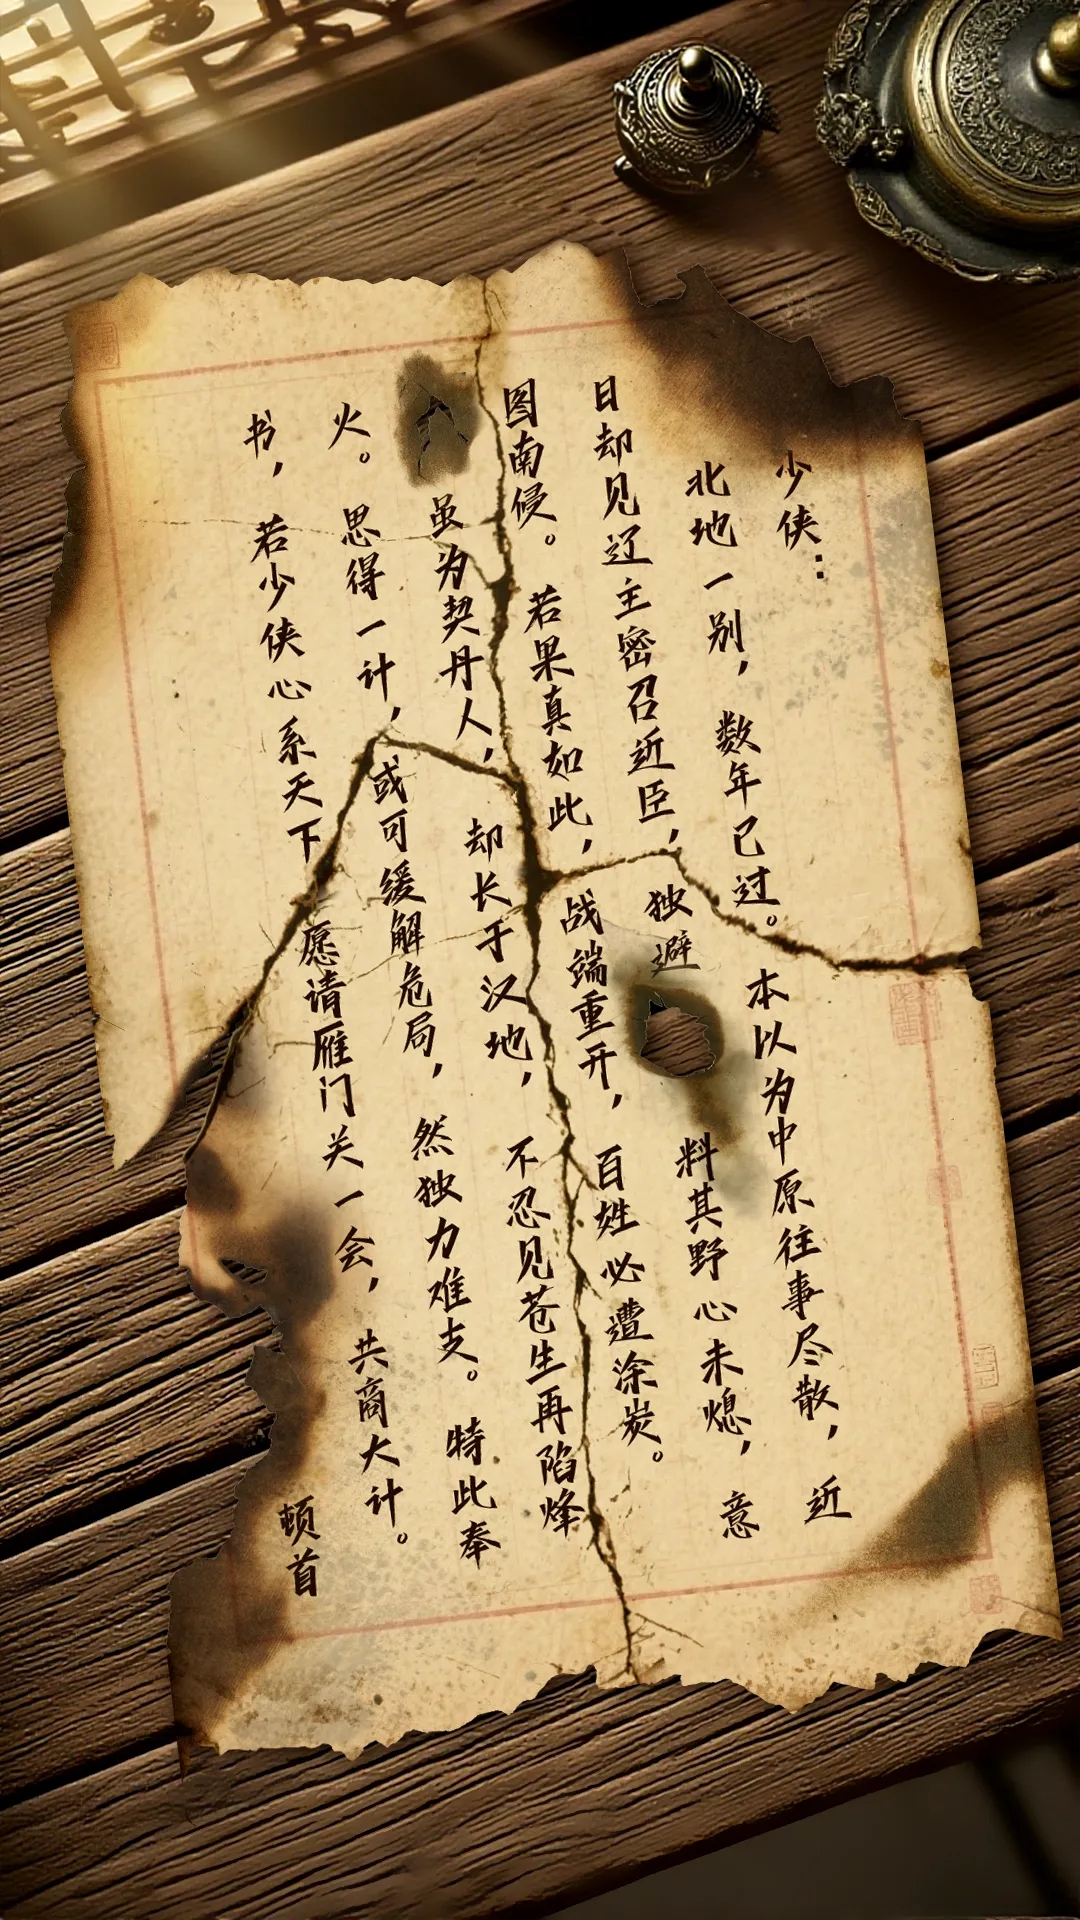 少侠：
北地一别，数年已过。本以为中原往事尽散，近
日却见辽主密召近臣，独避料其野心未熄，意
图南侵。若果真如此，战端重开，百姓必遭涂炭。
虽为契丹人，却长于汉地，不忍见苍生再陷烽
火。思得一计，或可缓解危局，然独力难支。特此奉
书，若少侠心系天下愿请雁门关一会，共商大计。
顿首